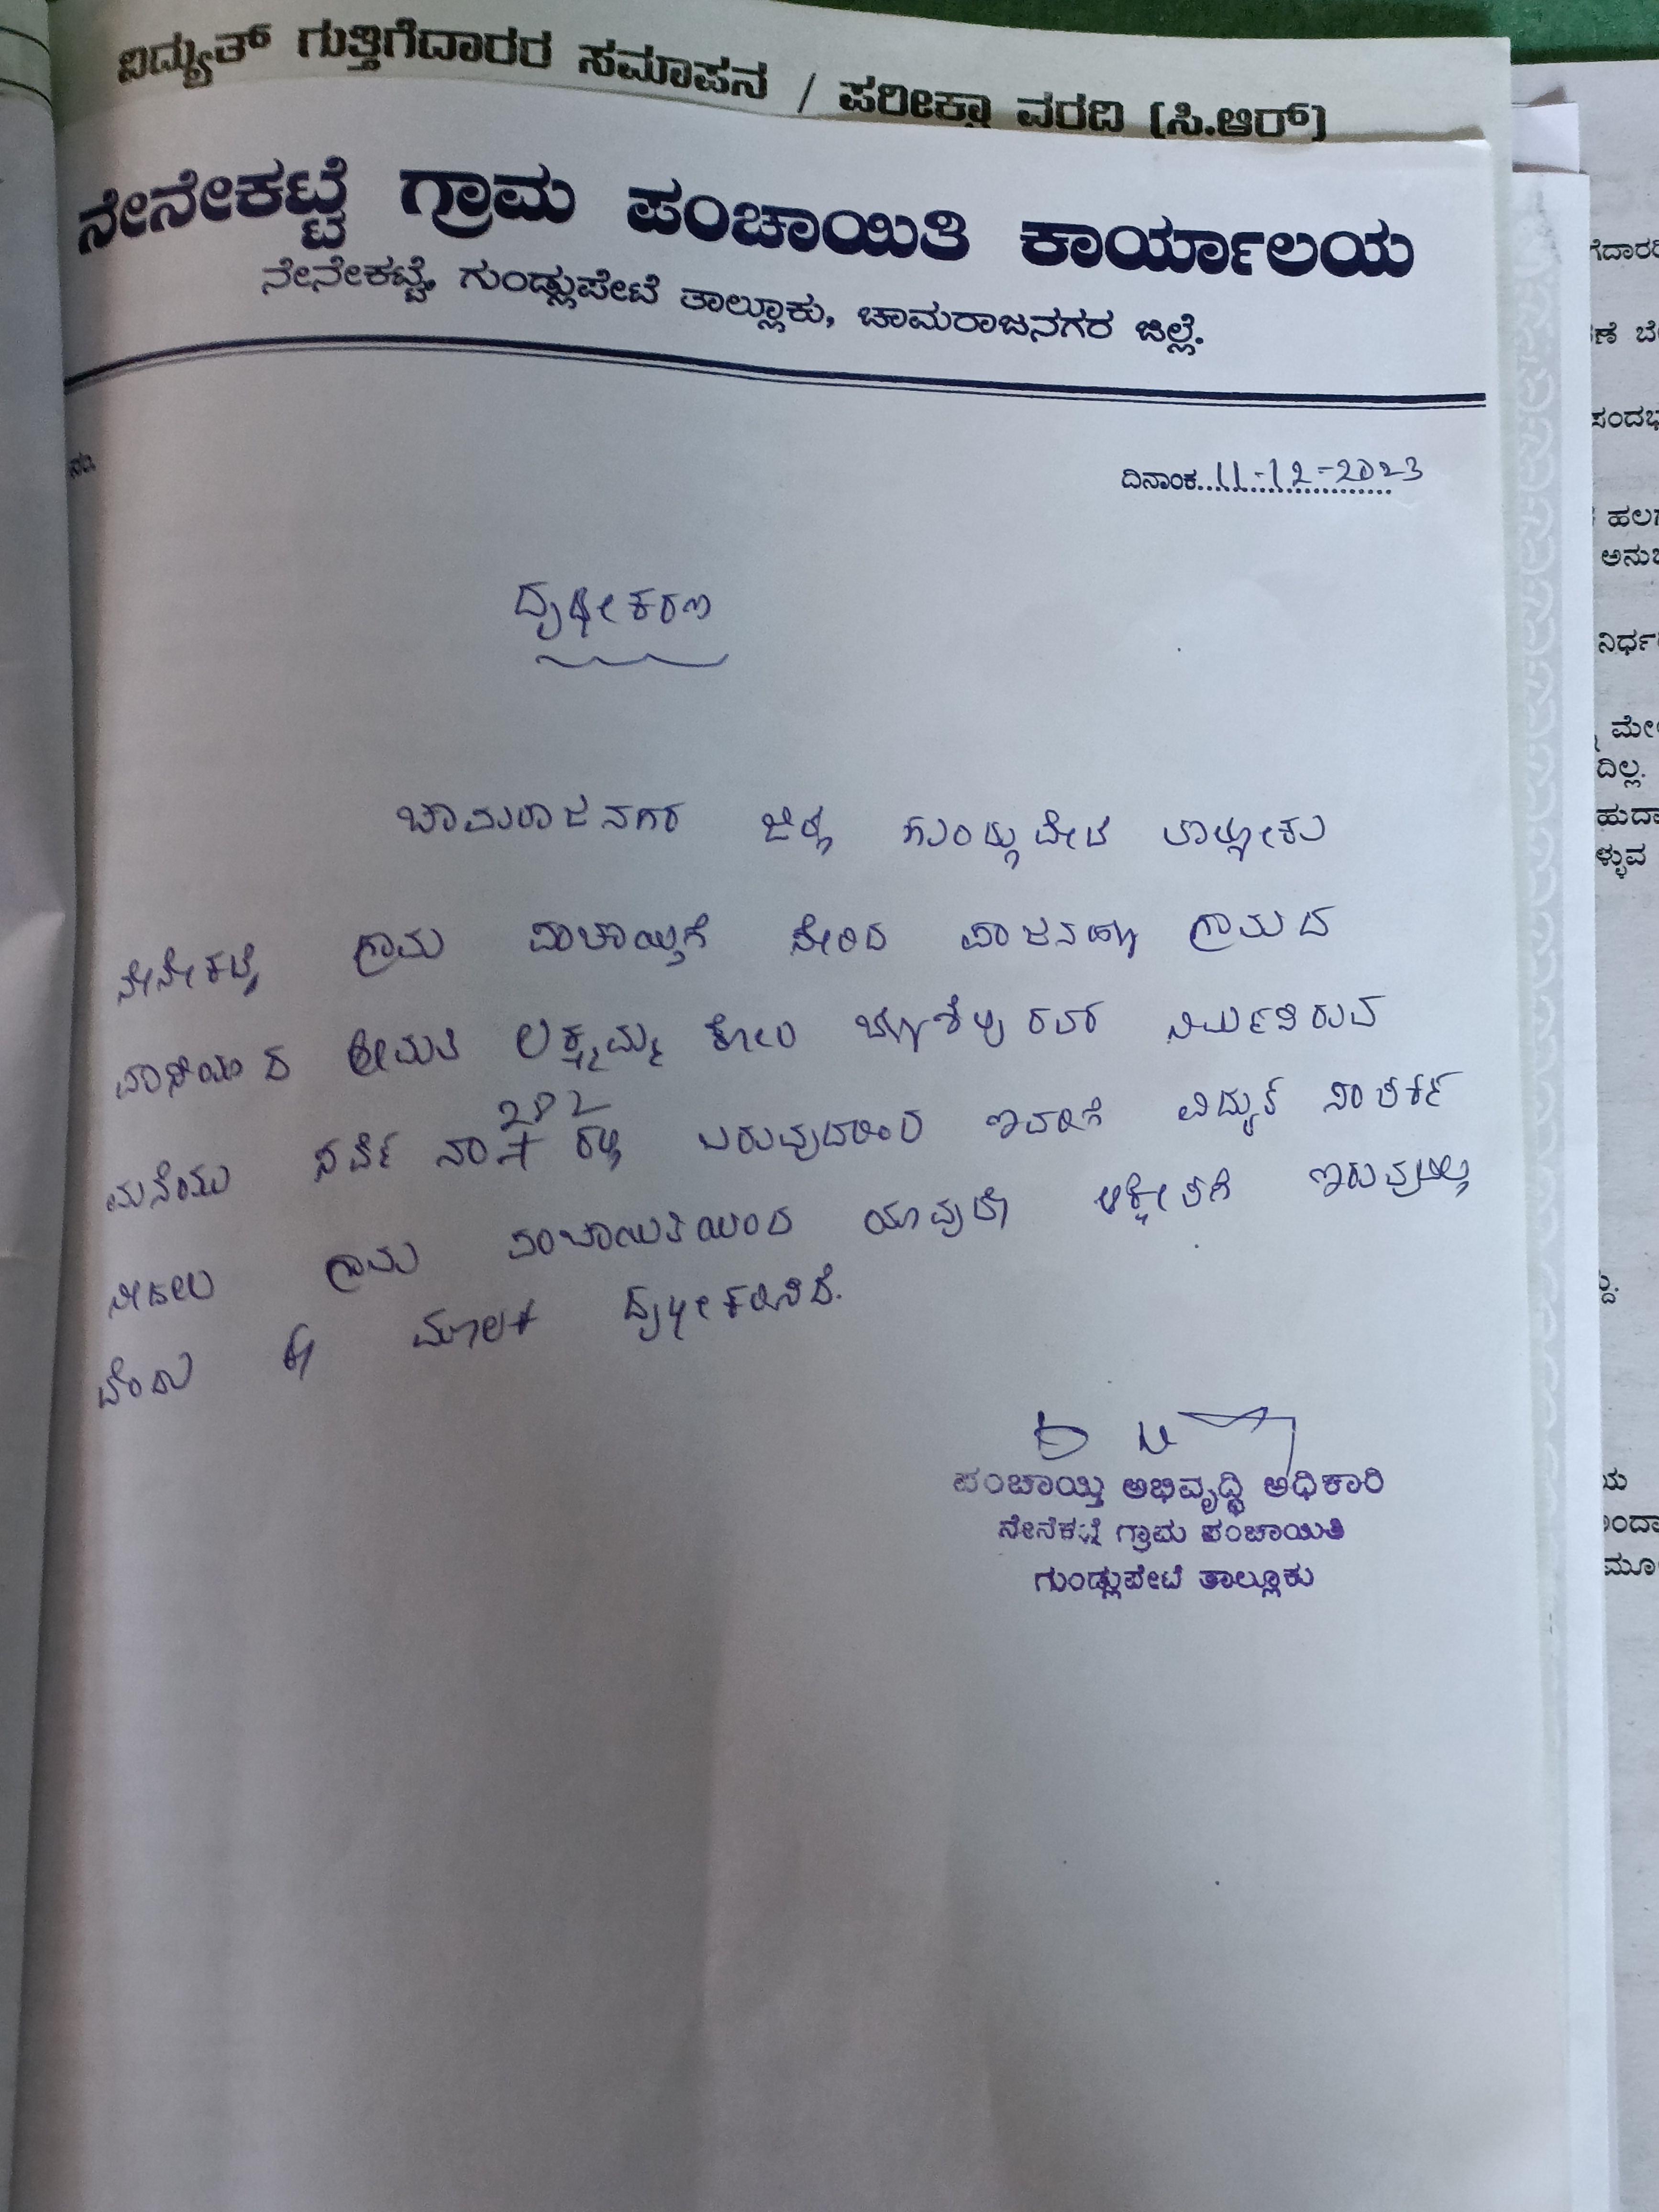 ವಿದ್ಯುತ್ ಗುತ್ತಿಗೆದಾರರ ಸಮಾಪನ / ಪರೀಕ್ಷಾ ವರದಿ (ಸಿ.ಆರ್)
ನೇನೇಕಟ್ಟೆ ಗ್ರಾಮ ಪಂಚಾಯಿತಿ ಕಾರ್ಯಾಲಯ
ನೇನೇಕಟ್ಟೆ, ಗುಂಡ್ಲುಪೇಟೆ ತಾಲ್ಲೂಕು, ಚಾಮರಾಜನಗರ ಜಿಲ್ಲೆ.
ನಂ.
ದಿನಾಂಕ 11-12-2023
ದೃಢೀಕರಣ
ಚಾಮರಾಜನಗರ ಜಿಲ್ಲೆ ಗುಂಡ್ಲುಪೇಟೆ ತಾಲ್ಲೂಕು
ನೇನೇಕಟ್ಟೆ ಗ್ರಾಮ ಪಂಚಾಯ್ತಿಗೆ ಸೇರಿದ ಗ್ರಾಮದ
ವಾಸಿಯಾದ ಶ್ರೀಮತಿ ಲಕ್ಷ್ಮಮ್ಮ ಕೋಂ ರವರ್ ನಿರ್ಮಿಸಿರುವ
ಮನೆಯು ಸರ್ವೆ ನಂ 202 ರಲ್ಲಿ ಬರುವುದರಿಂದ ಇವರಿಗೆ ವಿದ್ಯುತ್ ಸಂಪರ್ಕ
ನೀಡಲು ಗ್ರಾಮ ಪಂಚಾಯಿತಿಯಿಂದ ಯಾವುದೇ ಆಕ್ಷೇಪಣೆ ಇರುವುದಿಲ್ಲ
ವೆಂದು ಈ ಮೂಲಕ ದೃಢೀಕರಿಸಿದೆ.
ಪಂಚಾಯ್ತಿ ಅಭಿವೃದ್ಧಿ ಅಧಿಕಾರಿ
ನೇನೆಕಟ್ಟೆ ಗ್ರಾಮ ಪಂಚಾಯಿತಿ
ಗುಂಡ್ಲುಪೇಟೆ ತಾಲ್ಲೂಕು